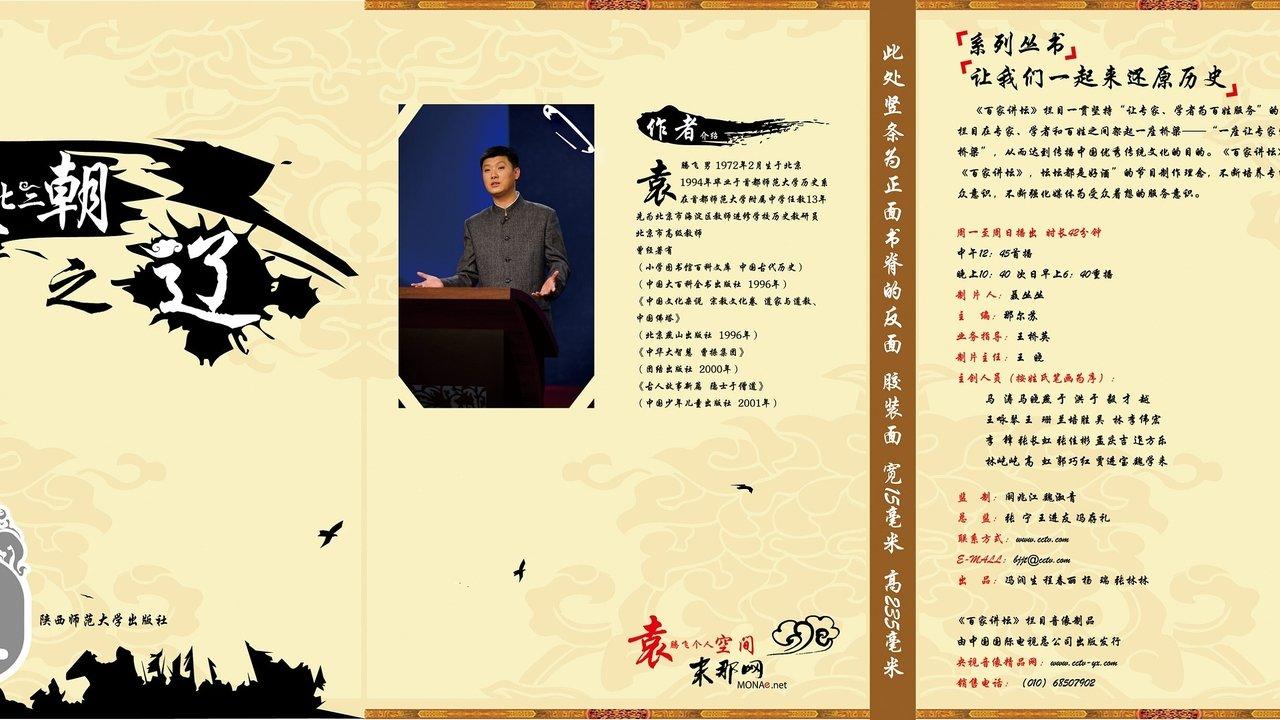 朝
之
辽
陕西师范大学出版社
作者介绍
袁腾飞 男 1972年2月生于北京
1994年毕业于首都师范大学历史系
在首都师范大学附属中学任教13年
先为北京市海淀区教师进修学校历史教研员
北京市高级教师
曾经著有
(小学图书馆百科文库 中国古代历史)
(中国大百科全书出版社 1996年)
《中国文化杂说 宗教文化卷 道家与道教、
中国佛塔》
(北京燕山出版社 1996年)
《中华大智慧 曹操集团》
(团结出版社 2000年)
《古人故事新篇 隐士于僧道》
(中国少年儿童出版社 2001年)
袁腾飞个人空间
末那网
MONAe.net
此处竖条为正面书脊的反面 胶装面 宽15毫米 高235毫米
「系列丛书」
「让我们一起来还原历史」
《百家讲坛》栏目一贯坚持“让专家、学者为百姓服务”的
栏目在专家、学者和百姓之间架起一座桥梁——“一座让专家
桥梁”,从而达到传播中国优秀传统文化的目的。《百家讲坛
《百家讲坛》,坛坛都是好酒”的节目制作理念,不断培养专
众意识,不断强化媒体为受众着想的服务意识。
周一至周日播出 时长42分钟
中午12:45首播
晚上10:40 次日早上6:40重播
制片人:聂丛丛
主 编:那尔苏
业务指导:王桥英
制片主任:王 晓
主创人员(按姓氏笔画为序):
马 涛 马晓燕 于 洪 于 毅 才 越
王咏琴 王 珊 兰培胜 吴 林 李伟宏
李 锋 张长虹 张佳彬 孟庆吉 迮方乐
林屹屹 高 虹 郭巧红 贾进宝 魏学来
监 制:阚兆江 魏淑青
总 监:张 宁 王进友 冯存礼
联系方式:www.cctv.com
E-MALL:bjjt@cctv.com
出 品:冯润生 程春丽 杨 瑞 张林林
《百家讲坛》栏目音像制品
由中国国际电视总公司出版发行
央视音像精品网:www.cctv-yx.com
销售电话:(010)68507902